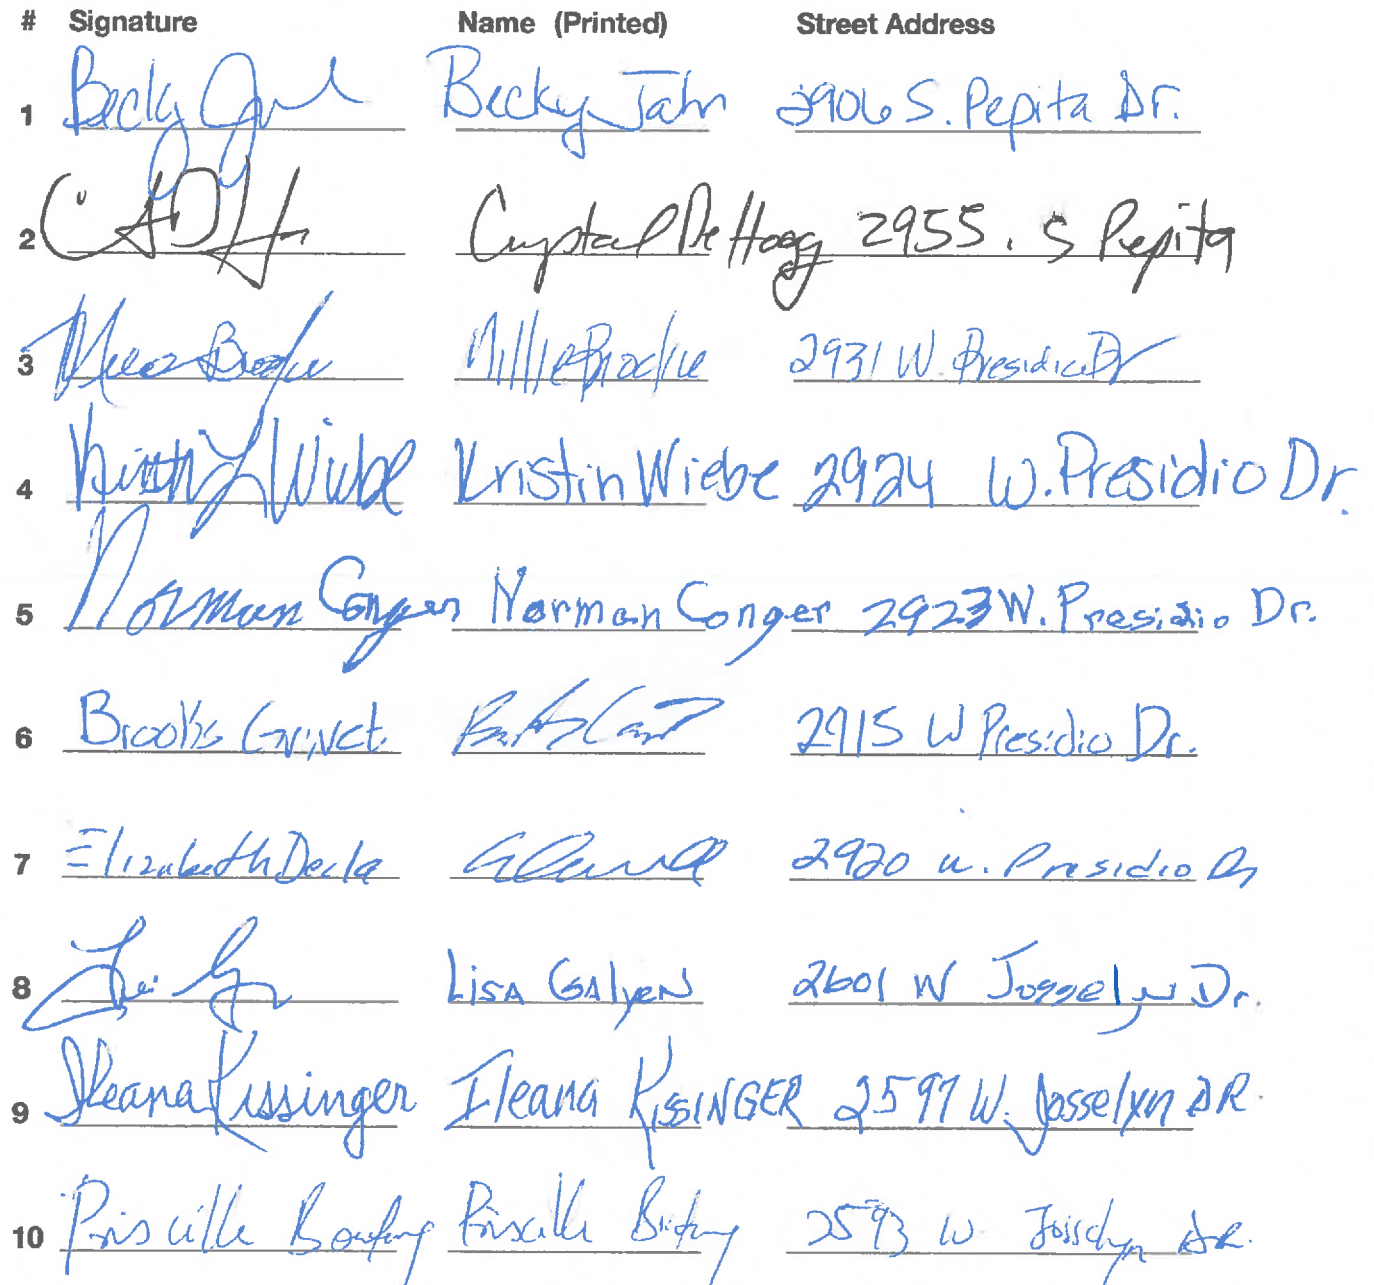 # Signature Name (Printed) Street Address
1 Becky Jahn Becky Jahn 2906 S. Pepita Dr.
2 Crystal DeHogg 2955. S Pepita
3 Millie Brodie 2931 W. Presidio Dr
4 Kristin L Wiebe Kristin Wiebe 2924 W. Presidio Dr.
5 Norman Conger Norman Conger 2923 W. Presidio Dr.
6 Brooks 2915 W Presidio Dr.
7 Elizabeth 2920 W. Presidio Dr
8 Lisa Galyen 2601 W Josselyn Dr.
9 Ileana Kissinger Ileana KISSINGER 2597 W. Josselyn DR.
10 Priscilla Priscilla 2593 W. Josselyn DR.